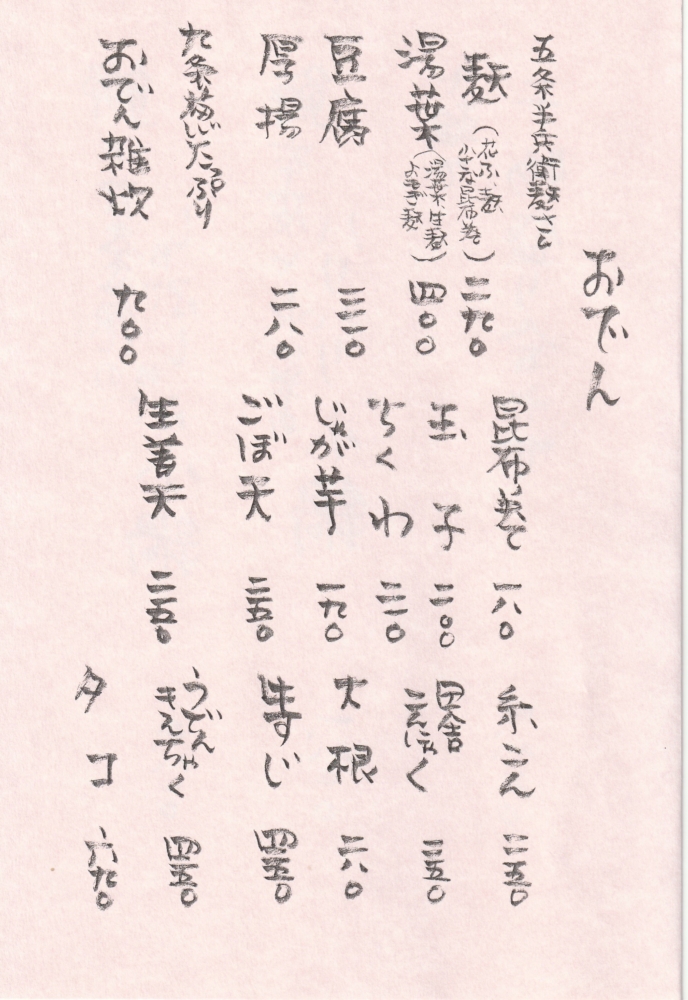 おでん
五条半兵衛麩さん
麩
(花ふ、麩
小さな昆布巻)
二九〇
湯葉
(湯葉、生麩
よもぎ麩)
四〇〇
豆腐
厚揚 二八〇
九条葱たっぷり
おでん雑炊 九〇〇
昆布巻き 一八〇
玉子 二〇〇
ちくわ 二一〇
じゃが芋 一九〇
ごぼ天 二五〇
生姜天 二五〇
糸こん 二五〇
田舎
こんにゃく
二五〇
大根 二八〇
牛すじ 四五〇
うどん
きんちゃく
四五〇
タコ 六九〇